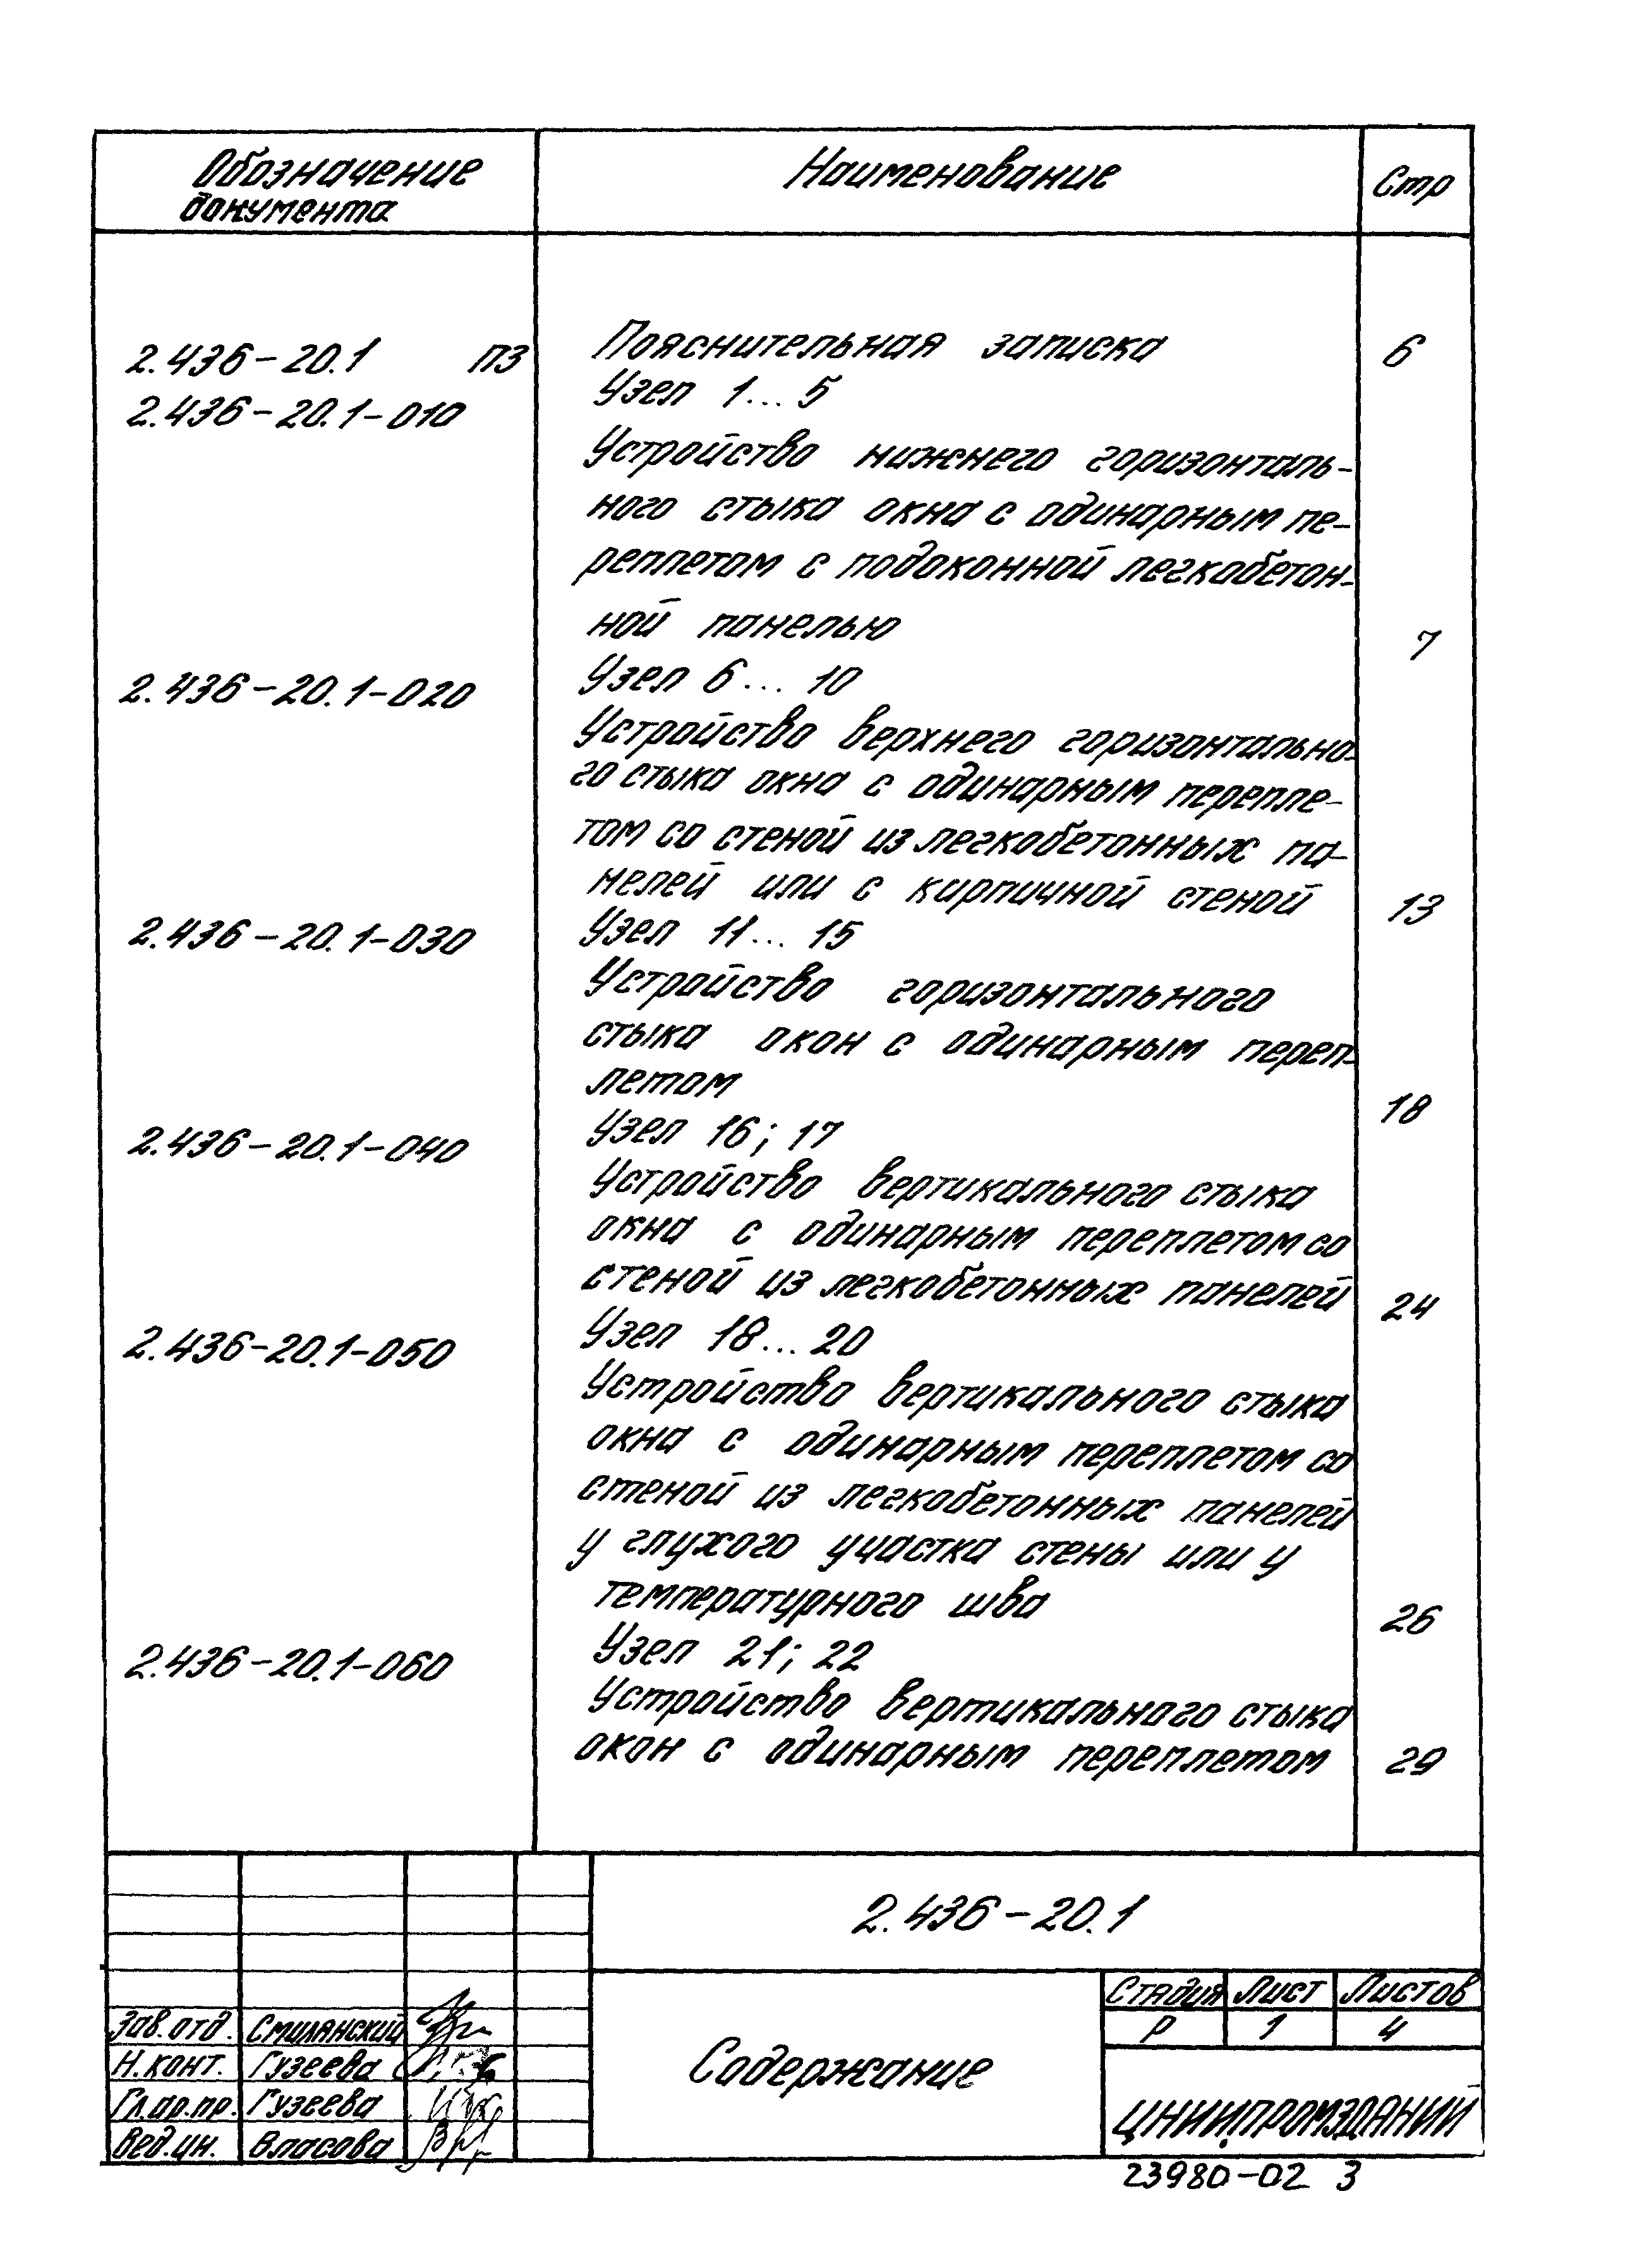 Обозначение документа Наименование Стр
2.436-20.1 ПЗ Пояснительная записка 6
2.436-20.1-010 Узел 1...5
Устройство нижнего горизонталь-
ного стыка окна с одинарным пе-
реплетом с подоконной легкобетон-
ной панелью 7
2.436-20.1-020 Узел 6...10
Устройство верхнего горизонтально-
го стыка окна с одинарным перепле-
том со стеной из легкобетонных па-
нелей или с кирпичной стеной 13
2.436-20.1-030 Узел 11...15
Устройство горизонтального
стыка окон с одинарным переп-
летом 18
2.436-20.1-040 Узел 16; 17
Устройство вертикального стыка
окна с одинарным переплетом со
стеной из легкобетонных панелей 24
2.436-20.1-050 Узел 18...20
Устройство вертикального стыка
окна с одинарным переплетом со
стеной из легкобетонных панелей
у глухого участка стены или у
температурного шва 26
2.436-20.1-060 Узел 21; 22
Устройство вертикального стыка
окон с одинарным переплетом 29
2.436-20.1
Стадия Лист Листов
Р 1 4
Зав. отд. Смилянский
Н. конт. Гузеева
Гл. ар. пр. Гузеева
Вед. ин. Власова
Содержание
ЦНИИПРОМЗДАНИЙ
23980-02 3